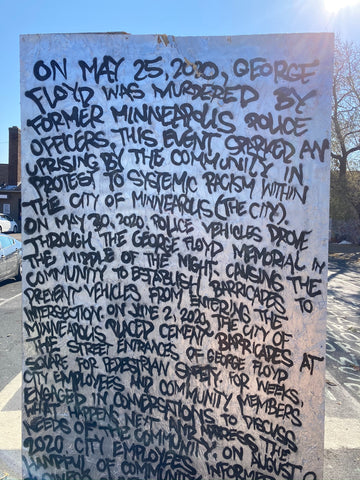 ON MAY 25, 2020, GEORGE
FLOYD WAS MURDERED BY
FORMER MINNEAPOLIS POLICE
OFFICERS. THIS EVENT SPARKED AN
UPRISING BY THE COMMUNITY IN
PROTEST TO SYSTEMIC RACISM WITHIN
THE CITY OF MINNEAPOLIS (THE CITY).
ON MAY 30, 2020 POLICE VEHICLES DROVE
THROUGH THE GEORGE FLOYD MEMORIAL IN
THE MIDDLE OF THE NIGHT CAUSING THE
COMMUNITY TO ESTABLISH BARRICADES TO
PREVENT VEHICLES FROM ENTERING THE
INTERSECTION. ON JUNE 2, 2020 THE CITY OF
MINNEAPOLIS PLACED CEMENT BARRICADES AT
THE STREET ENTRANCES OF GEORGE FLOYD
SQUARE FOR PEDESTRIAN SAFETY. FOR WEEKS,
CITY EMPLOYEES AND COMMUNITY MEMBERS
ENGAGED IN CONVERSATIONS TO DISCUSS
WHAT HAPPENS NEXT AND ADDRESS THE
NEEDS OF THE COMMUNITY. ON AUGUST
2020 CITY EMPLOYEES INFORMED A
HANDFUL OF COMMUNITY